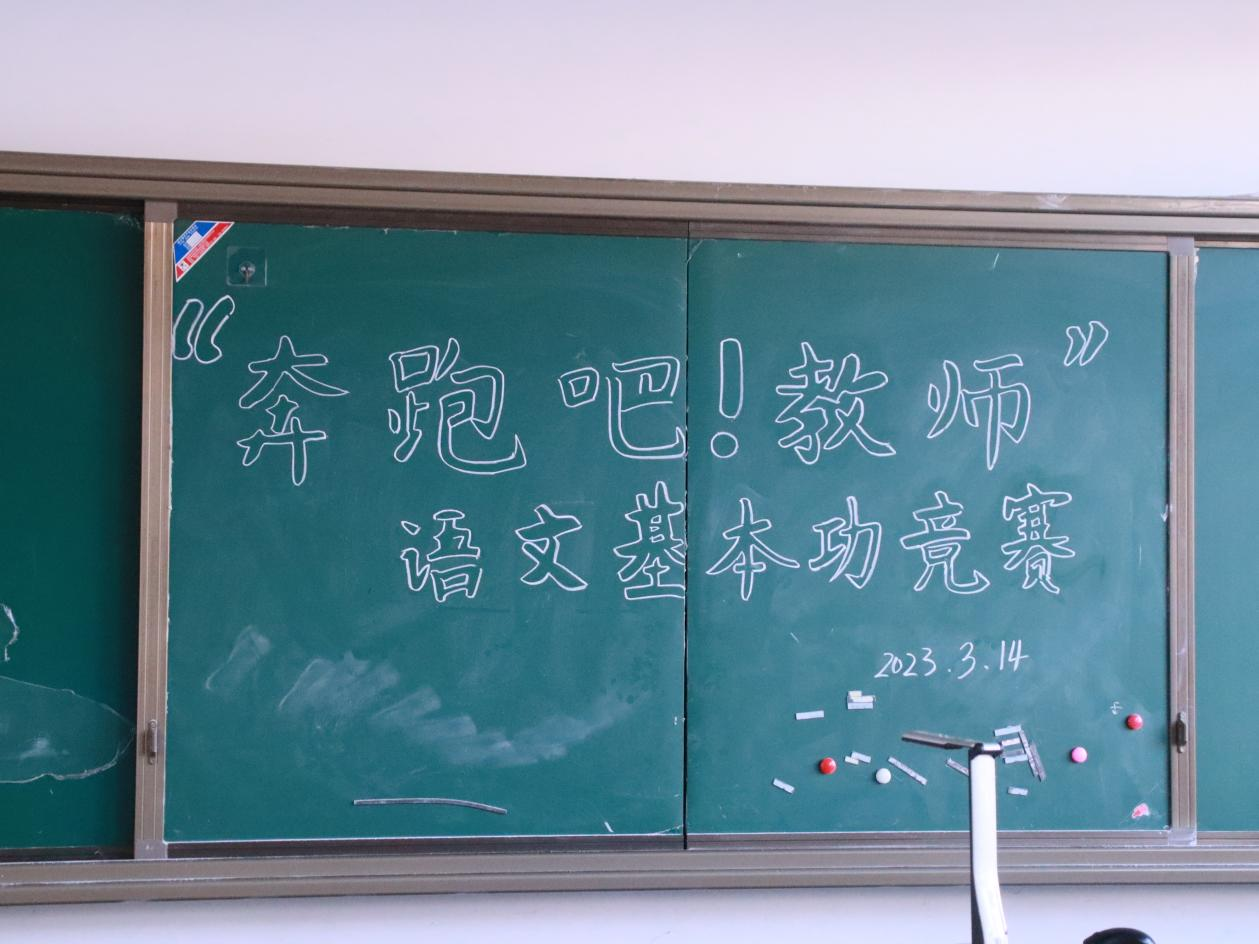 “奔跑吧！教师”
语文基本功竞赛
2023.3.14